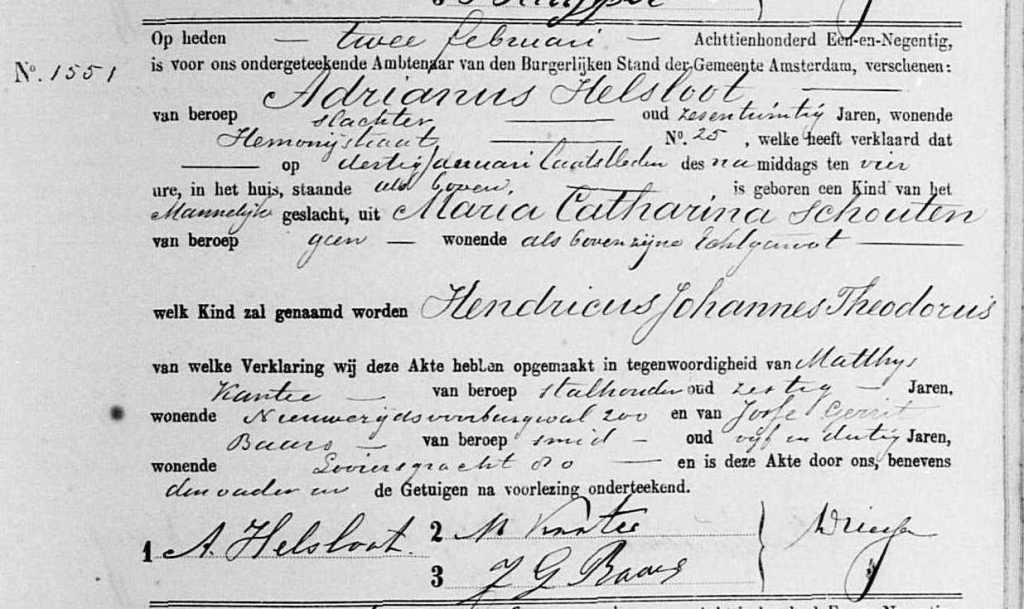 Op heden — twee februari — Achttienhonderd Een-en-Negentig,
Nº. 1551 is voor ons ondergeteekende Ambtenaar van den Burgerlijken Stand der Gemeente Amsterdam, verschenen:
Adrianus Helsloot
van beroep slachter oud zesentwintig Jaren, wonende
Hemonystraat Nº. 25, welke heeft verklaard dat
op dertig Januari laatstleden des namiddags ten vier
ure, in het huis, staande als boven, is geboren een Kind van het
Mannelijk geslacht, uit Maria Catharina Schouten
van beroep geen — wonende als boven zijne Echtgenoot
welk Kind zal genaamd worden Hendricus Johannes Theodorus
van welke Verklaring wij deze Akte hebben opgemaakt in tegenwoordigheid van Matthys
Kantee van beroep stalhouder oud zestig — Jaren,
wonende Nieuwezijdsvoorburgwal 200 en van Josse Gerrit
Baars — van beroep smid — oud vijf en dertig Jaren,
wonende Looiersgracht 80 — en is deze Akte door ons, benevens
den vader en de Getuigen na voorlezing onderteekend.
1 A. Helsloot. 2 M Kantee
3 J G Baars